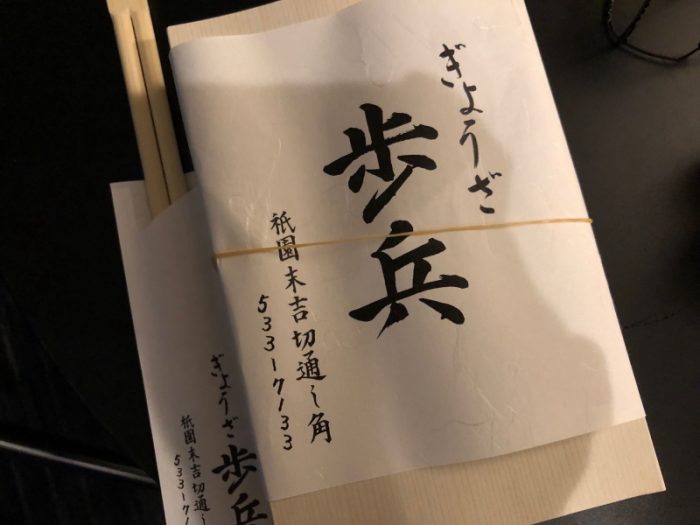 ぎょうざ
歩兵
祇園末吉切通し角
533-7133
ぎょうざ
歩兵
祇園末吉切通し
533-7